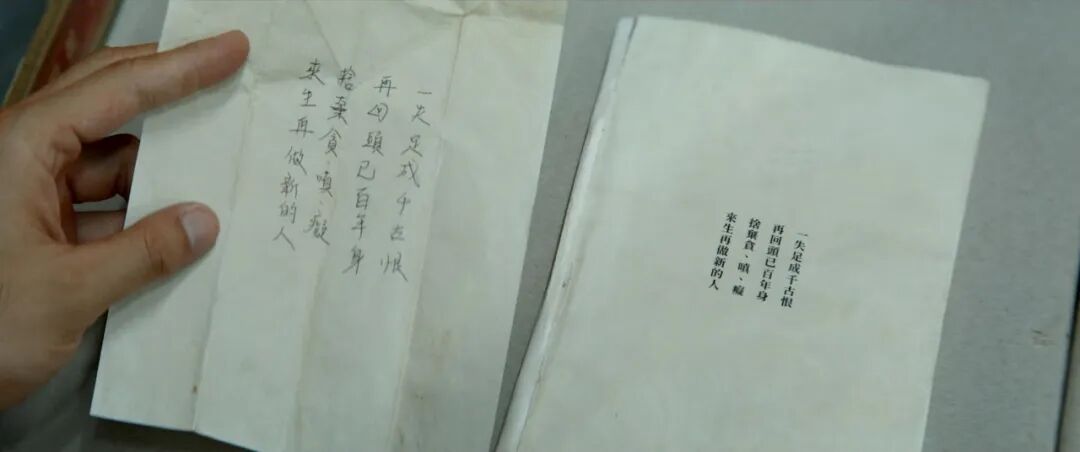 一失足成千古恨
再回頭已百年身
捨棄貪、嗔、癡
來生再做新的人
一失足成千古恨
再回頭已百年身
捨棄貪、嗔、癡
來生再做新的人